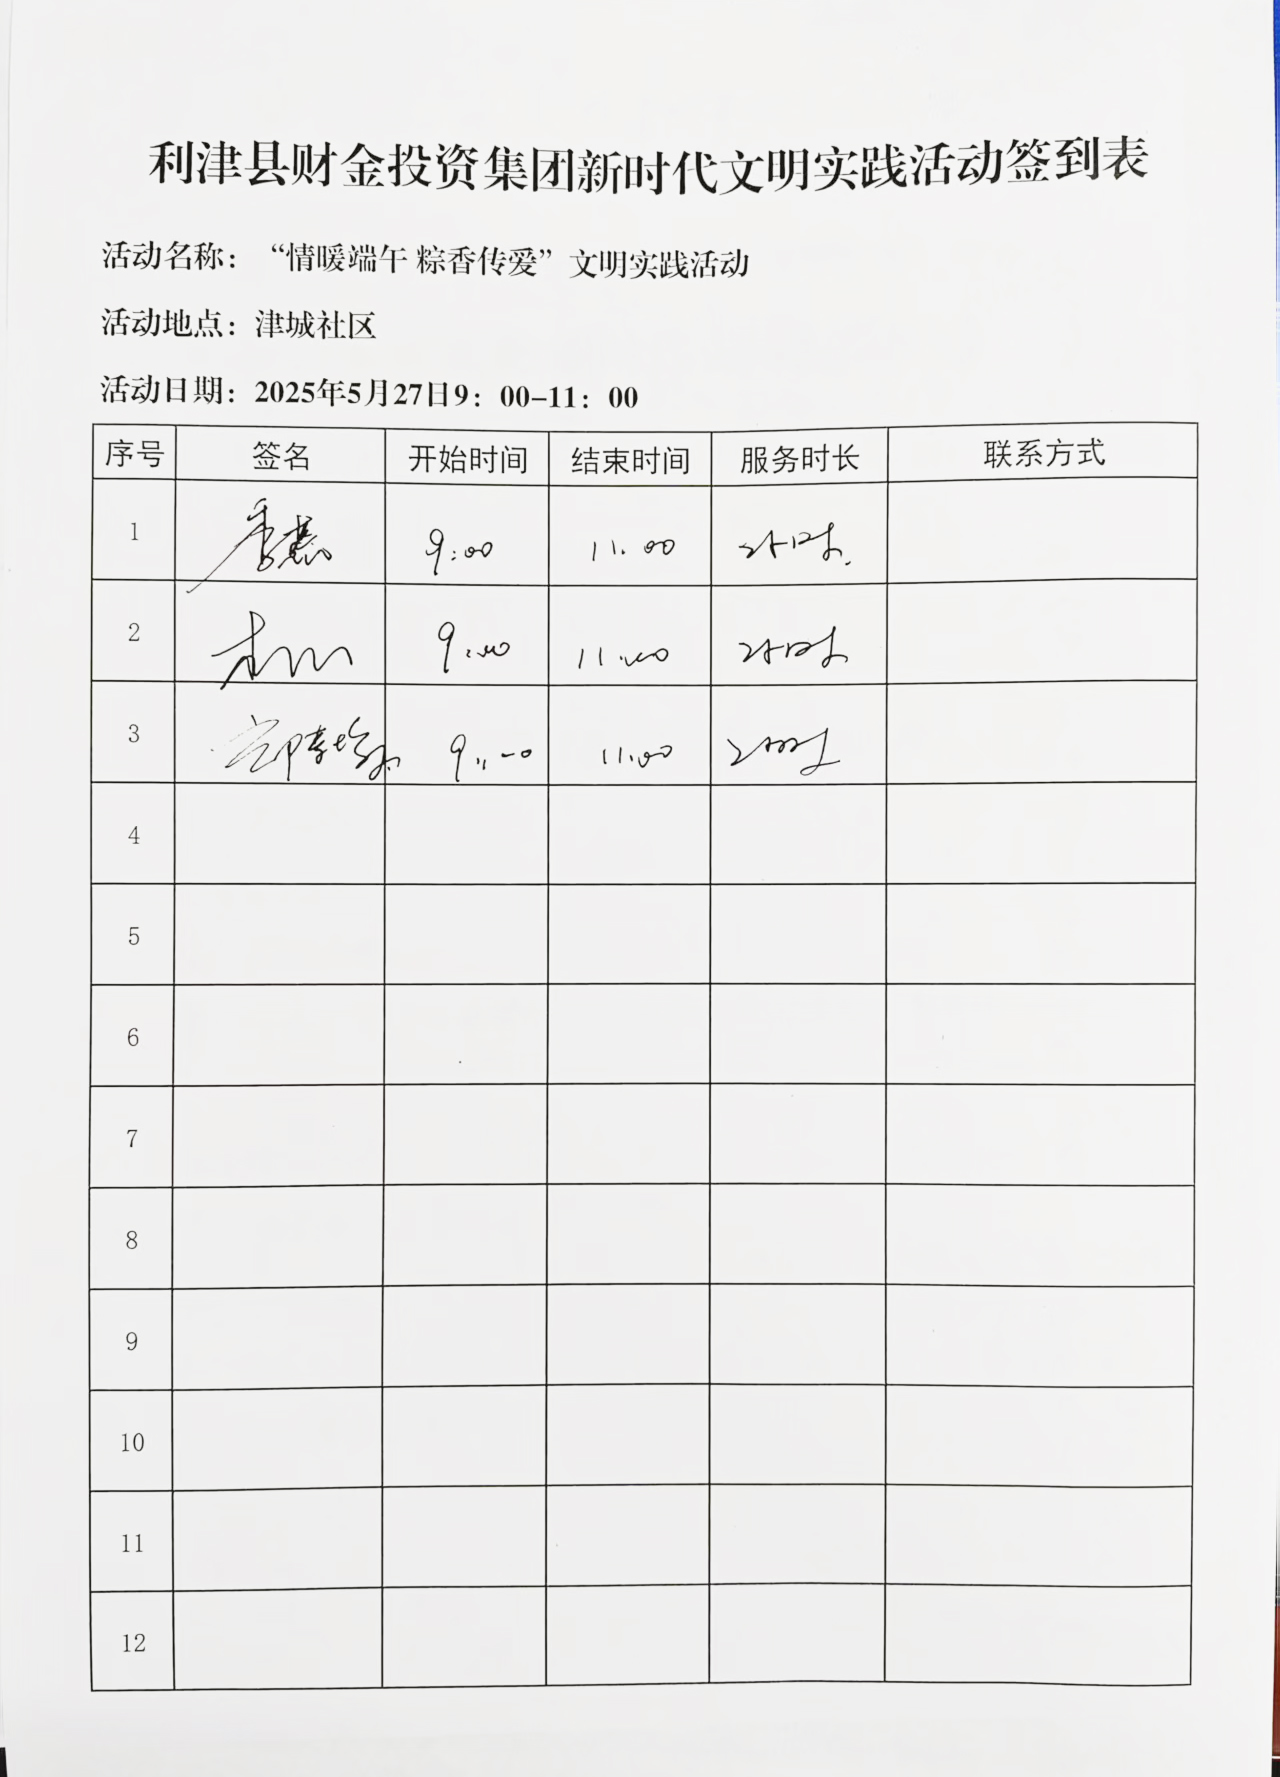 利津县财金投资集团新时代文明实践活动签到表
活动名称：“情暖端午 粽香传爱”文明实践活动
活动地点：津城社区
活动日期：2025年5月27日9：00-11：00
序号 签名 开始时间 结束时间 服务时长 联系方式
1 9:00 11.00 2小时.
2 9:00 11:00 2小时
3 9:00 11:00 2小时
4
5
6
7
8
9
10
11
12